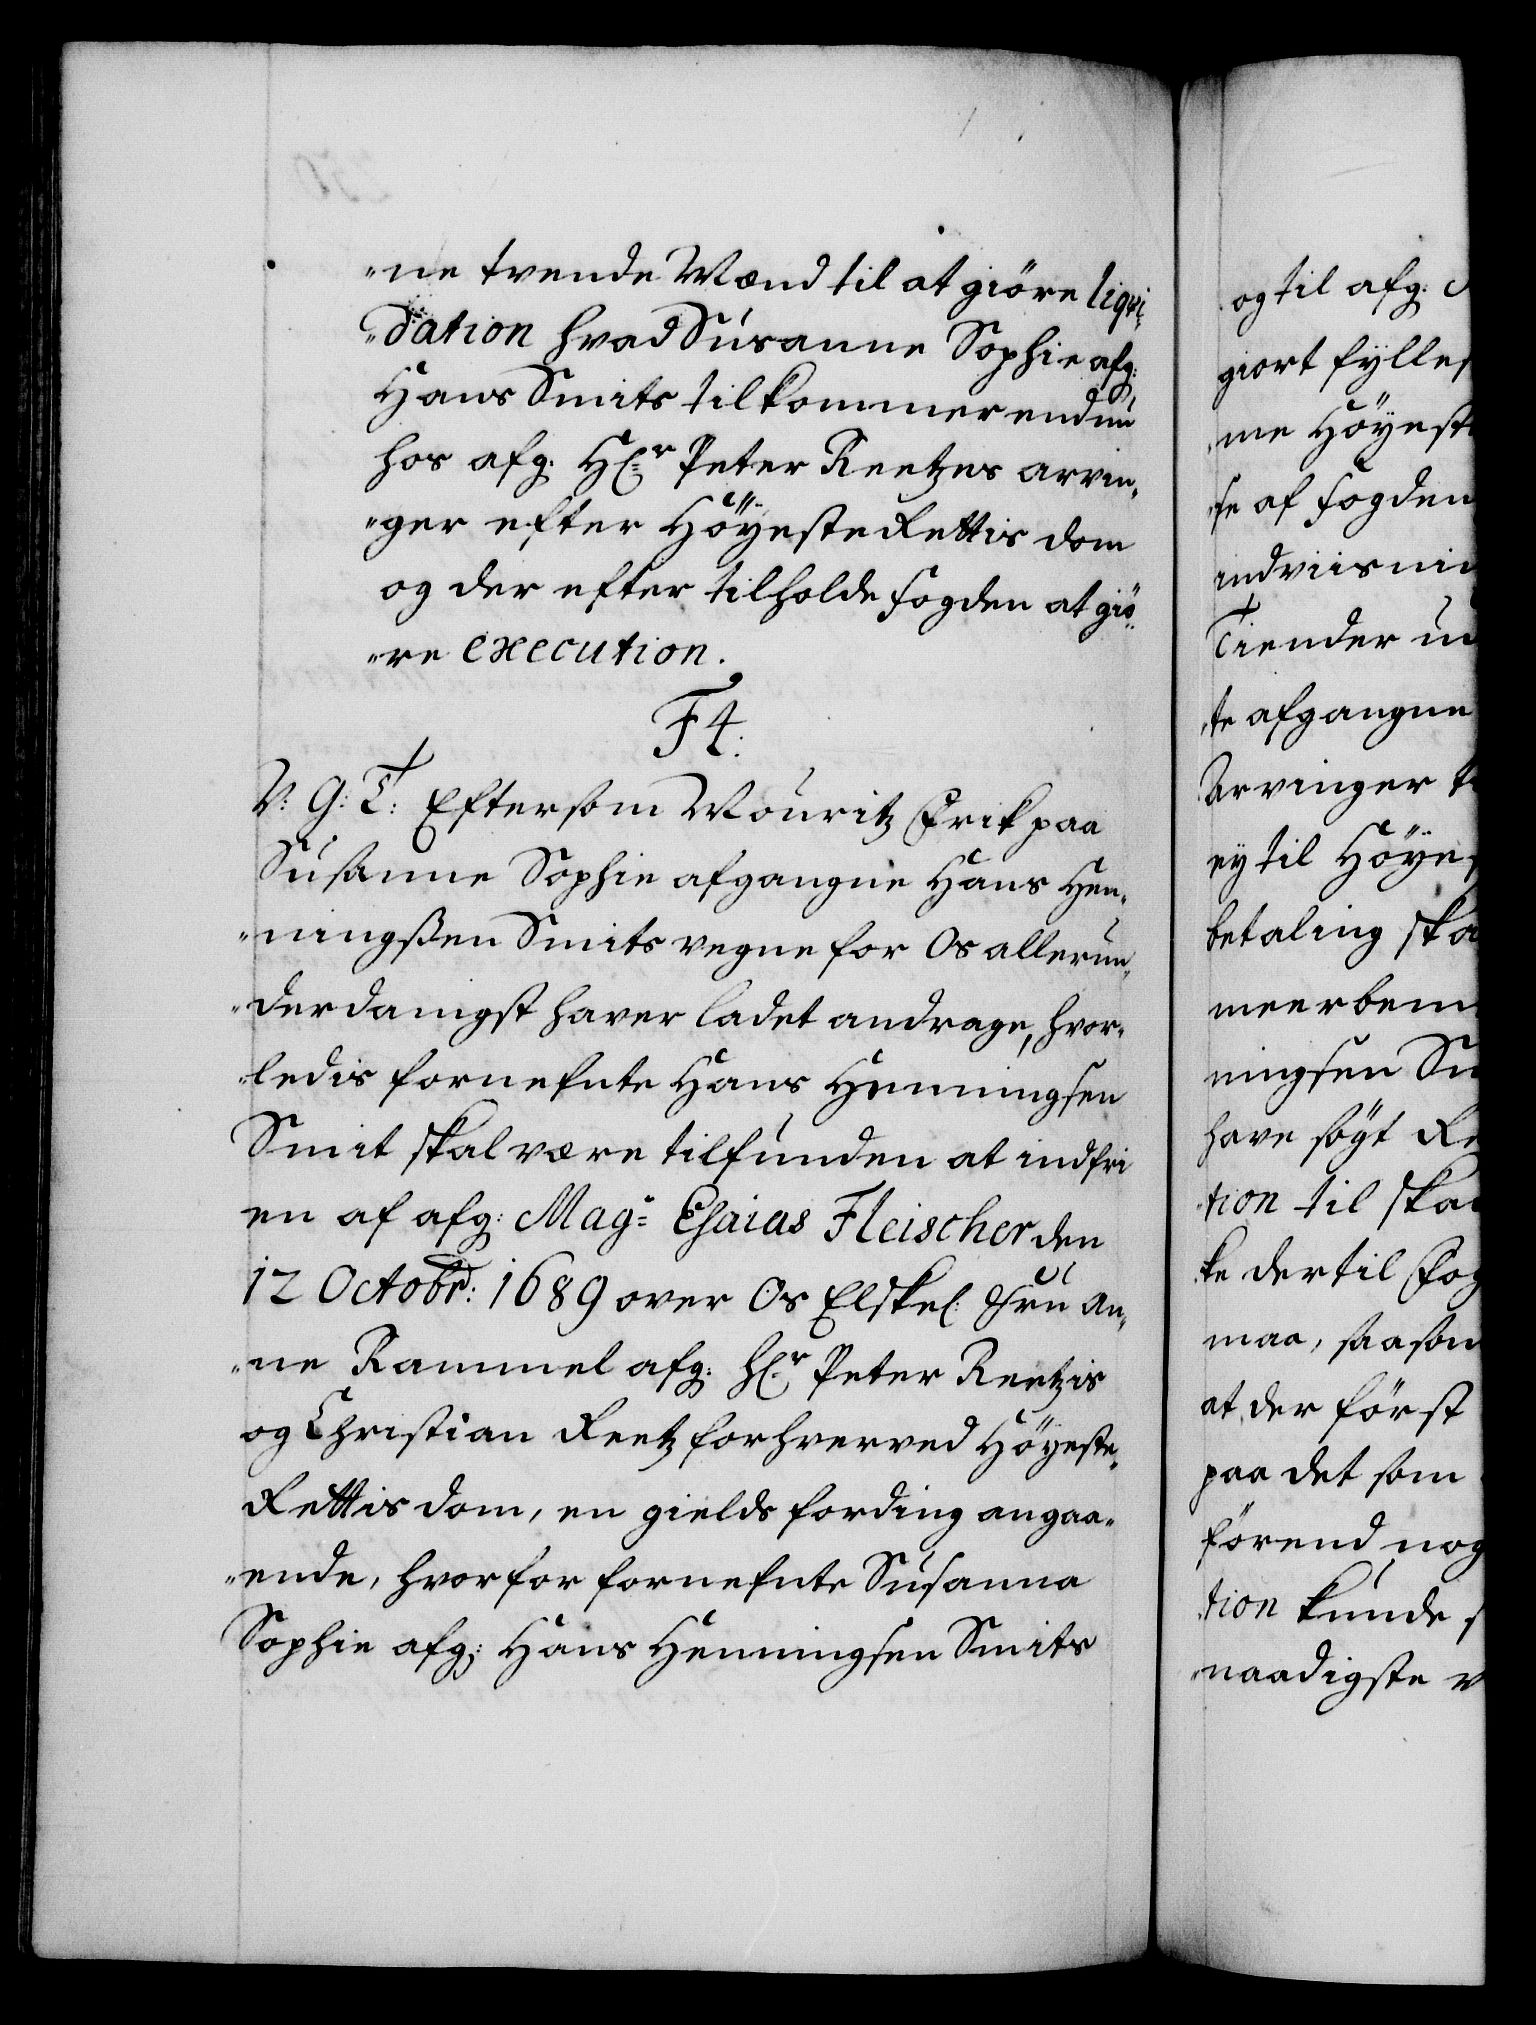 "ne tvende Mænd til at giöre liqvi-
"dation hvad Susanne Sophie afg:
Hans Smits tilkommer endnu
hos afg: H(r Peter Reetzes arvin,
"ger efter Höyeste Rettis dom
og der efter tilholde fogden at giö-
"re execution.
F4:
V: G: T: Eftersom Mouritz Erik paa
Susanne Sophie afgangne Hans Hen,
"ningßen Smits vegne for Os allerun,
"derdanigst haver ladet andrage, hvor-
"ledis fornefnte Hans Henningsen
Smit skal være tilfunden at indfri
en af afg: Mag= Esaias Fleischer den
12 Octobr: 1689 over Os Elskel: Fru An,
"ne Rammel afg: H(r Peter Reetzis
og Christian Reetz forhverved Höyeste,
Rettis dom, en gields fording angaa,
"ende, hvorfor fornefnte Susanna
Sophie afg: Hans Henningsen Smits
og til afg:
giort fylles
"me Höyest
"se af fogden
indviisnin
Tiender u
"te afgangne
Arvinger
ey til Höye
betaling ska
meerbem
ningsen Sm
have sögt Re
"tion til ska
"ke dertil fog
maa, saasom
at der först
paa det som
förend nog
"tion kunde
"naadigste v